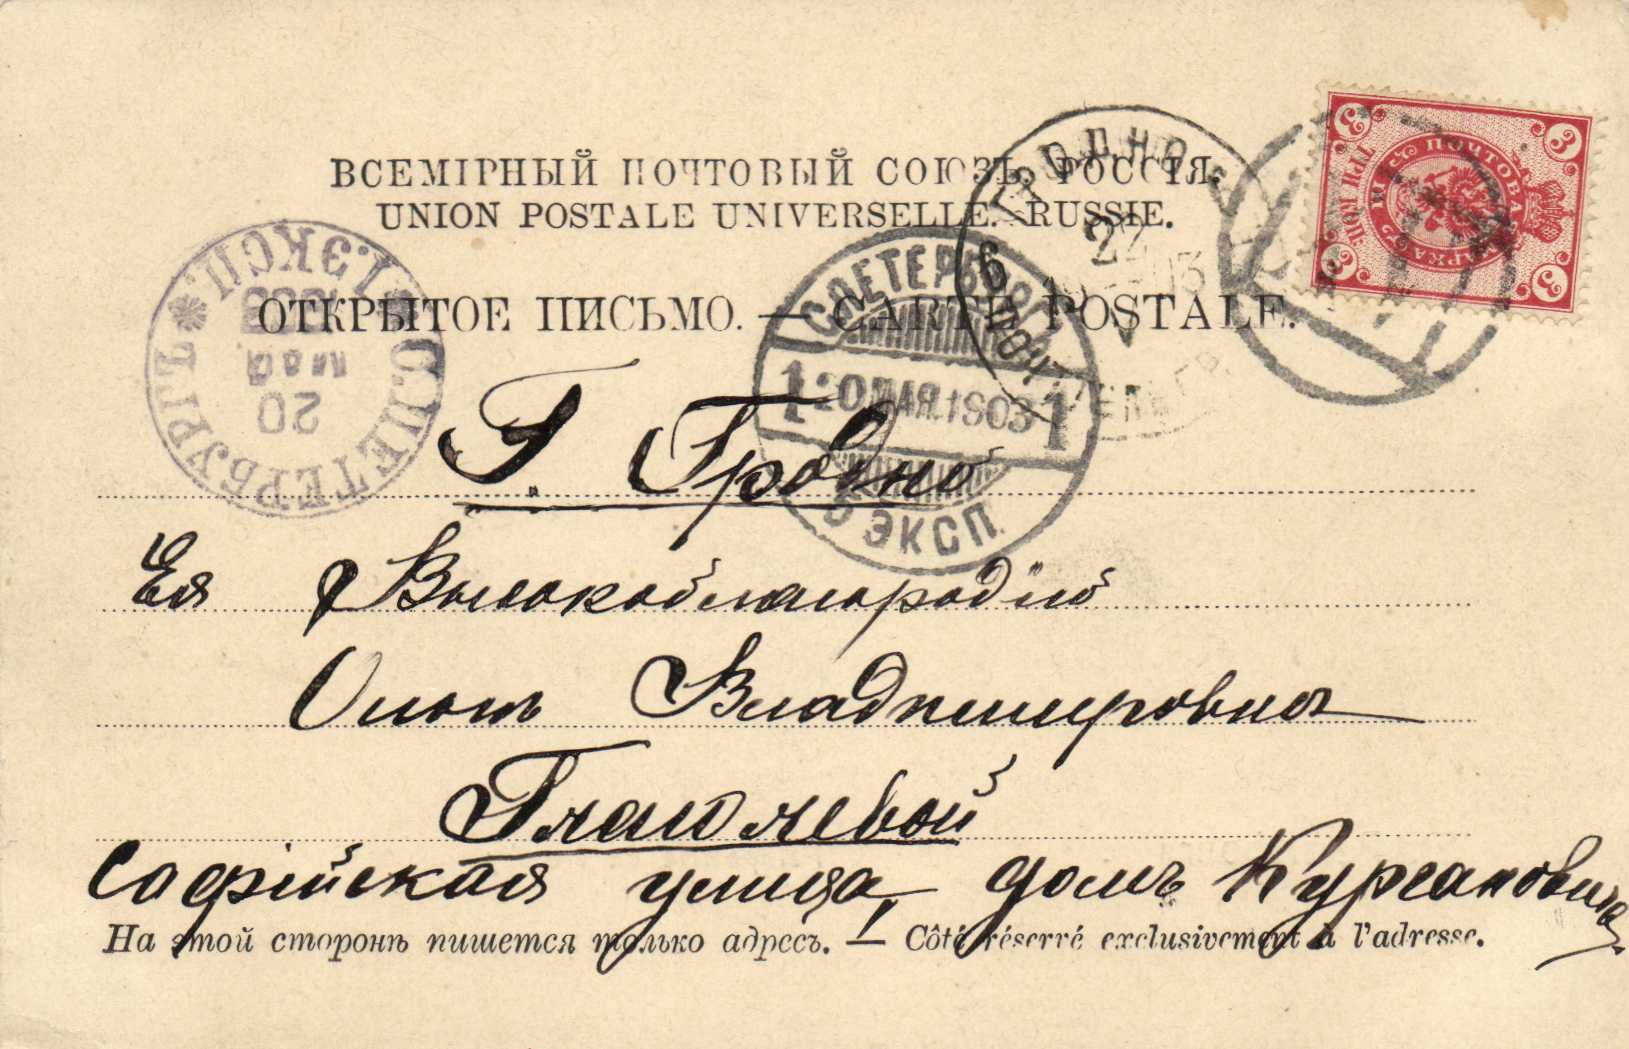 ВСЕМІРНЫЙ ПОЧТОВЫЙ СОЮЗЪ. РОССІЯ.
UNION POSTALE UNIVERSELLE. RUSSIE.
ОТКРЫТОЕ ПИСЬМО. — CARTE POSTALE.
3 3 3 3
ПОЧТОВАЯ МАРКА
ТРИ КОП.
ГРОДНО
6 22 03
ПОЧТ ТЕЛЕГР.
С.ПЕТЕРБУРГЪ
1 20 МАЯ.1903 1
5 ЭКСП.
С.ПЕТЕРБУРГЪ I.ЭКСП.
20 МАЯ 1903
Г. Гродно
Ея Высокоблагородію
Ольгѣ Владимировнѣ
Глаголевой
Софійская улица, домъ Кургановича
На этой сторонѣ пишется только адресъ. — Côté réservé exclusivement à l'adresse.